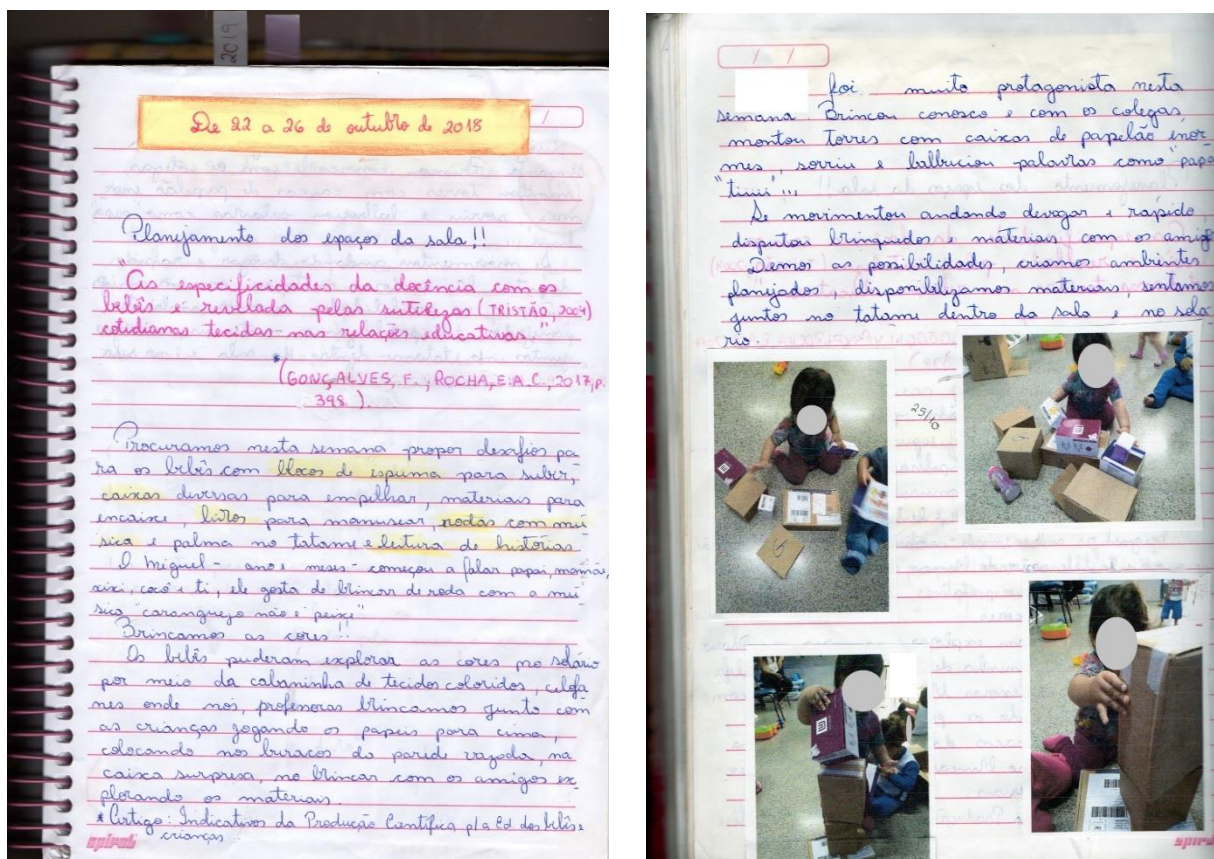 2019
De 22 a 26 de outubro de 2018
/
Planejamento dos espaços da sala!!
"As especificidades da docência com os
bebês é revelada pelas sutilezas (TRISTÃO, 2004)
cotidianas tecidas nas relações educativas"
*(GONÇALVES, F., ROCHA, E.A.C., 2017, p.
398).
Procuramos nesta semana propor desafios pa
ra os bebês com blocos de espuma para subir,
caixas diversas para empilhar, materiais para
encaixe, livros para manusear, rodas com mú
sica e palma no tatame e leitura de histórias.
O Miguel - ano e meses - começou a falar papai, mamãe,
xixi, cocô e ti, ele gosta de brincar de roda com a mú
sica "caranguejo não é peixe"
Brincamos as cores!!
Os bebês puderam explorar as cores no solário
por meio da cabaninha de tecidos coloridos, celofa
nes onde nós, professoras brincamos junto com
as crianças jogando os papeis para cima,
colocando nos buracos da parede vazada, na
caixa surpresa, no brincar com os amigos ex
plorando os materiais.
*Artigo: Indicativos da Produção Científica p/a Ed. dos bebês e
crianças
spiral
/ /
foi muito protagonista nesta
semana. Brincou conosco e com os colegas,
montou torres com caixas de papelão enor
mes, sorriu e balbuciou palavras como "papa
"tiuui"!!!
Se movimentou andando devagar e rápido,
disputou brinquedos e materiais com os amig
Demos as possibilidades, criamos ambientes
planejados, disponibilizamos materiais, sentamos
juntos no tatame dentro da sala e no solá
rio.
25/10